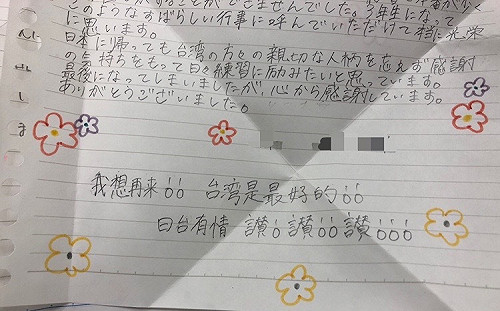 このようなすばらしい行事に呼んでいただけて本当に光栄
に思います。
日本に帰っても台湾の方々の親切な人柄を忘れず感謝
の気持ちをもって日々練習に励みたいと思っています。
最後になってしまいましたが、心から感謝しています。
ありがとうございました。
我想再来!! 台湾是最好的!!
日台有情 讃!讃!!讃!!!